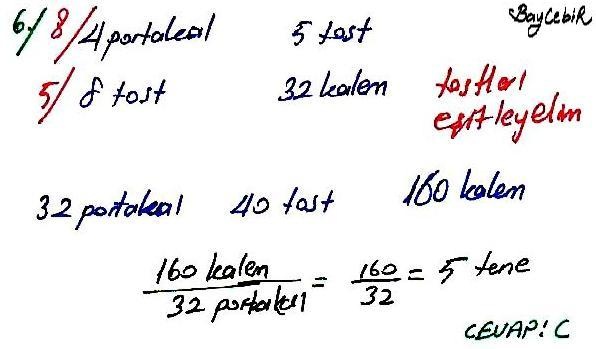 6/ 8/ 4 portakal 5 tost BayCebiR
5/ 8 tost 32 kalem tostları
eşitleyelim
32 portakal 40 tost 160 kalem
160 kalem / 32 portakal = 160 / 32 = 5 tene
CEVAP: C